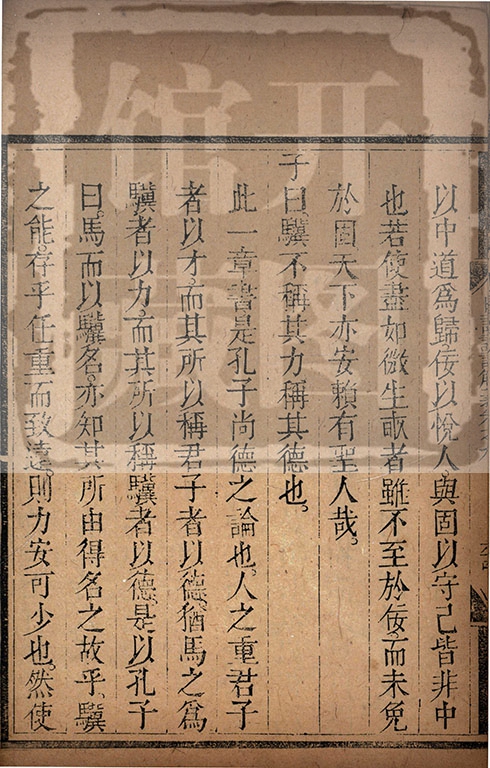 以中道爲歸佞以悅人與固以守己皆非中
也若使盡如微生畝者雖不至於佞而未免
於固天下亦安賴有聖人哉
子曰驥不稱其力稱其德也
此一章書是孔子尚德之論也人之重君子
者以才而其所以稱君子者以德猶馬之爲
驥者以力而其所以稱驥者以德是以孔子
曰馬而以驥名亦知其所由得名之故乎驥
之能存乎任重而致遠則力安可少也然使